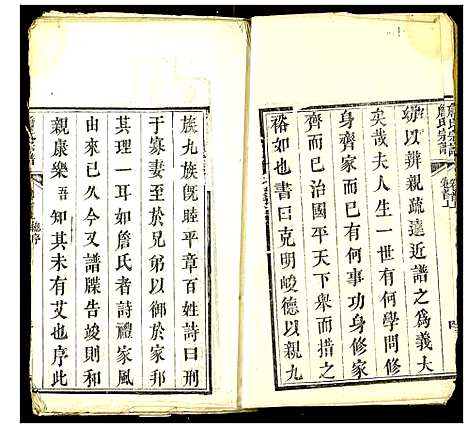 詹氏宗譜
幼以辨親疏達近譜之為義大
矣哉夫人生一世有何學問修
身齊家而已有何事功身修家
齊而已治國平天下舉而措之
裕如也書曰克明峻德以親九
族九族旣睦平章百姓詩曰刑
于寡妻至於兄弟以御於家邦
其理一耳如詹氏者詩禮家風
由來已久今又譜牒告竣則和
親康樂吾知其未有艾也序此